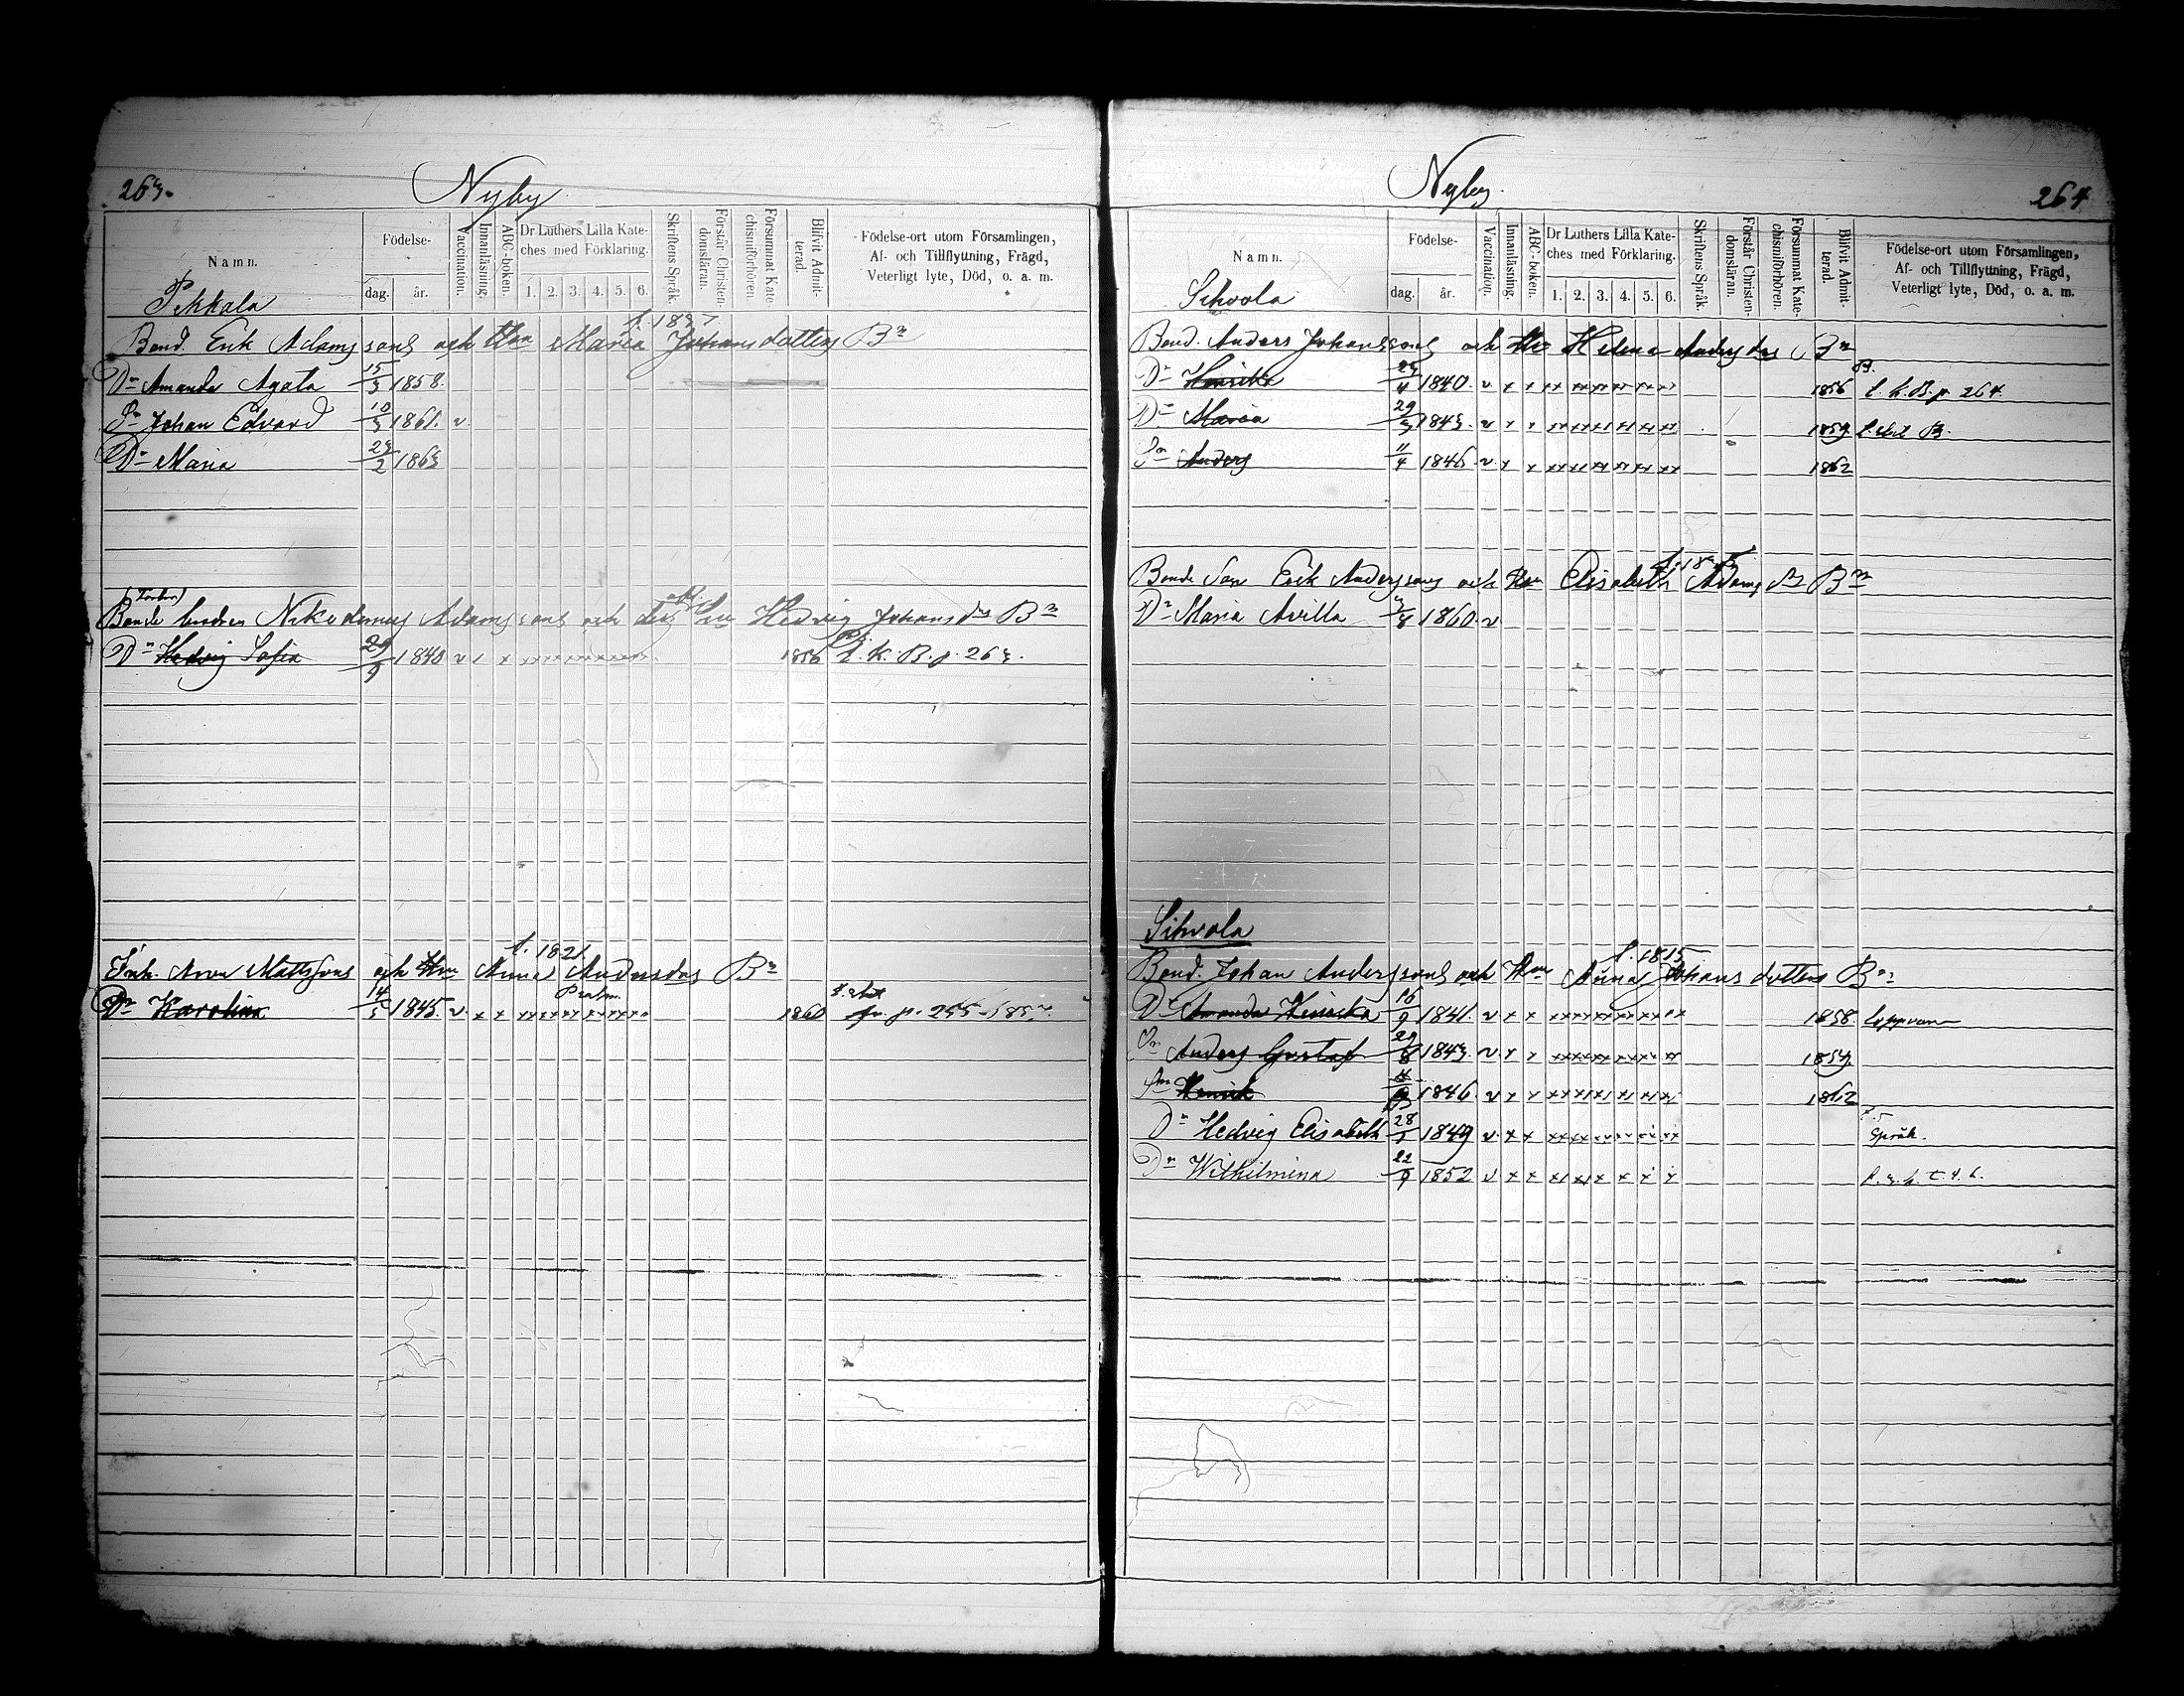 263.
Nyby
Namn.
Födelse-
dag.
år.
Vaccination.
Innanläsning.
ABC-boken.
Dr Luthers Lilla Kate-
ches med Förklaring.
1. 2. 3. 4. 5. 6.
Skriftens Språk.
Förstår Christen-
domsläran.
Försummat Kate-
chismiförhören.
Blifvit Admit-
terad.
Födelse-ort utom Församlingen,
Af- och Tillflyttning, Frägd,
Veterligt lyte, Död, o. a. m.
Pekkala
Bond. Erik Adamssons och Hu Maria Johansdotters Bn
Dr Amanda Agata 15/3 1858.
Sn Johan Edvard 10/3 1861. v
Dr Maria 23/2 1863
Bonde brodren Nikodemus Adamssons och des Hu Hedvig Johansds Bn
Dr Hedvig Sofia 29/9 1840 v x x 1856 l. K. B. p. 263.
f. 1821.
Inh. Mattssons och Hu Anna Andersdrs Bn
Dr Karolina 14/5 1845. v x x 1860 p. 255
Nyby.
264
Namn.
Födelse-
dag.
år.
Vaccination.
Innanläsning.
ABC-boken.
Dr Luthers Lilla Kate-
ches med Förklaring.
1. 2. 3. 4. 5. 6.
Skriftens Språk.
Förstår Christen-
domsläran.
Försummat Kate-
chismiförhören.
Blifvit Admit-
terad.
Födelse-ort utom Församlingen,
Af- och Tillflyttning, Frägd,
Veterligt lyte, Död, o. a. m.
Sihvola
Bond. Anders Johanssons och Hu Helena Andersdrs Bn
Dr Henrika 23/4 1840. v x x 1856 l. K. B. p. 264.
Dr Maria 1843. v x x 1859
Sn Anders 11/4 1846. v x x 1862
Bonde Son Erik Anderssons och Hu Elisabeth Adamsdr Bn
Dr Maria Avilla 1860. v
Sihvola
f. 1815
Bond. Johan Anderssons och Hu Anna Johansdotters Bn
Dr Amanda Henrika 16/9 1841. v x x 1858.
Sn Anders Gustaf 29/8 1843. v x x 1859
Sn Henrik 1846 v x x 1862
Dr Hedvig Elisabeth 28/1 1849 v x x Språk.
Dr Wilhelmina 22/9 1852 v x x